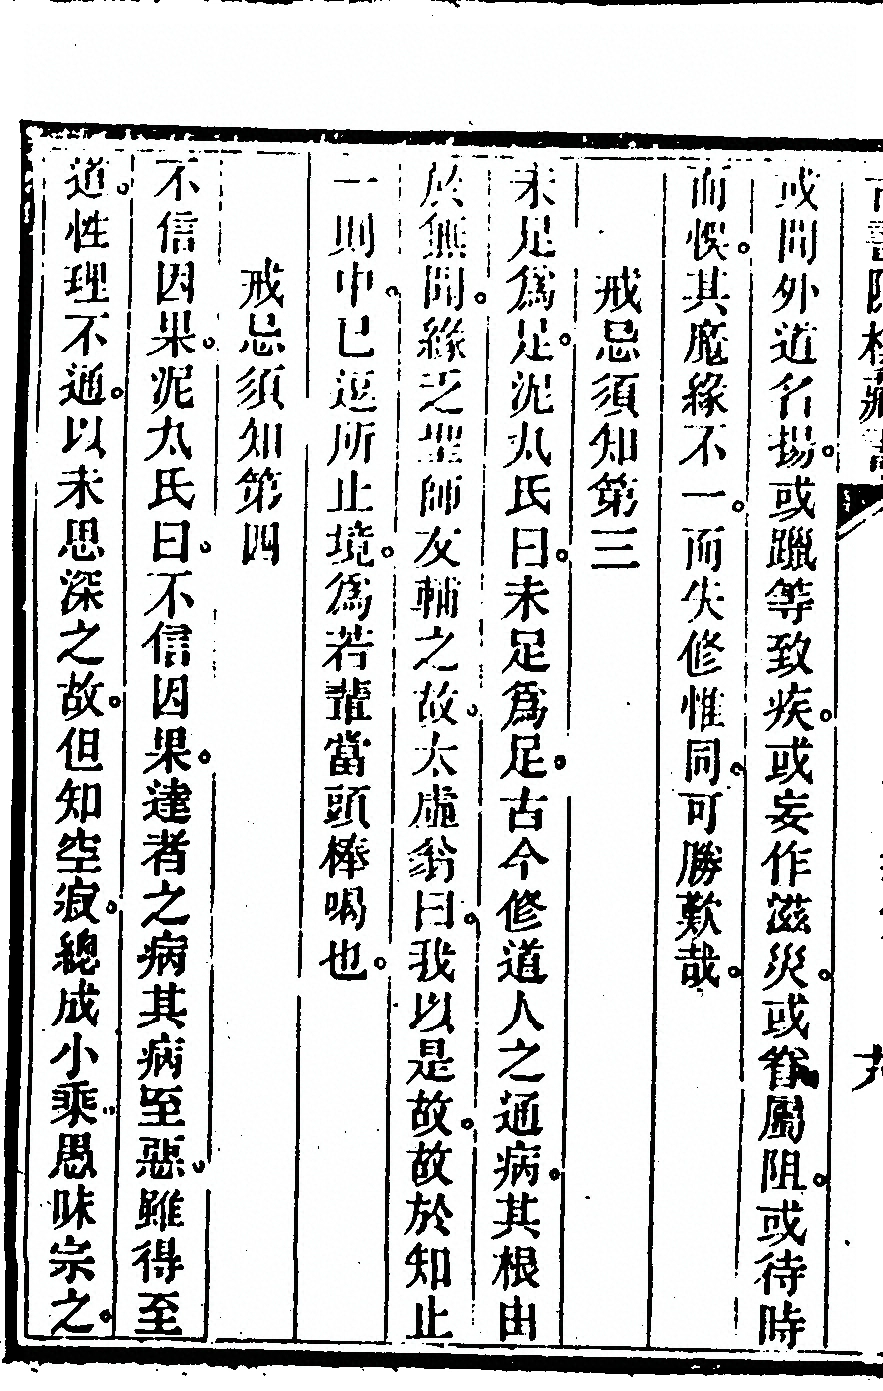 或問外道名揚。或躐等致疾。或妄作滋災。或眷屬阻。或待時
而悞。其魔緣不一。而失修惟同。可勝歎哉。
戒忌須知第三
未足爲足。泥丸氏曰。未足爲足。古今修道人之通病。其根由
於無聞。緣乏聖師友輔之故。太虛翁曰。我以是故。故於知止
一則中。已逗所止境。爲若輩當頭棒喝也。
戒忌須知第四
不信因果。泥丸氏曰。不信因果。達者之病其病至惡。雖得至
道。性理不通。以未思深之故。但知空寂。總成小乘。愚昧宗之。